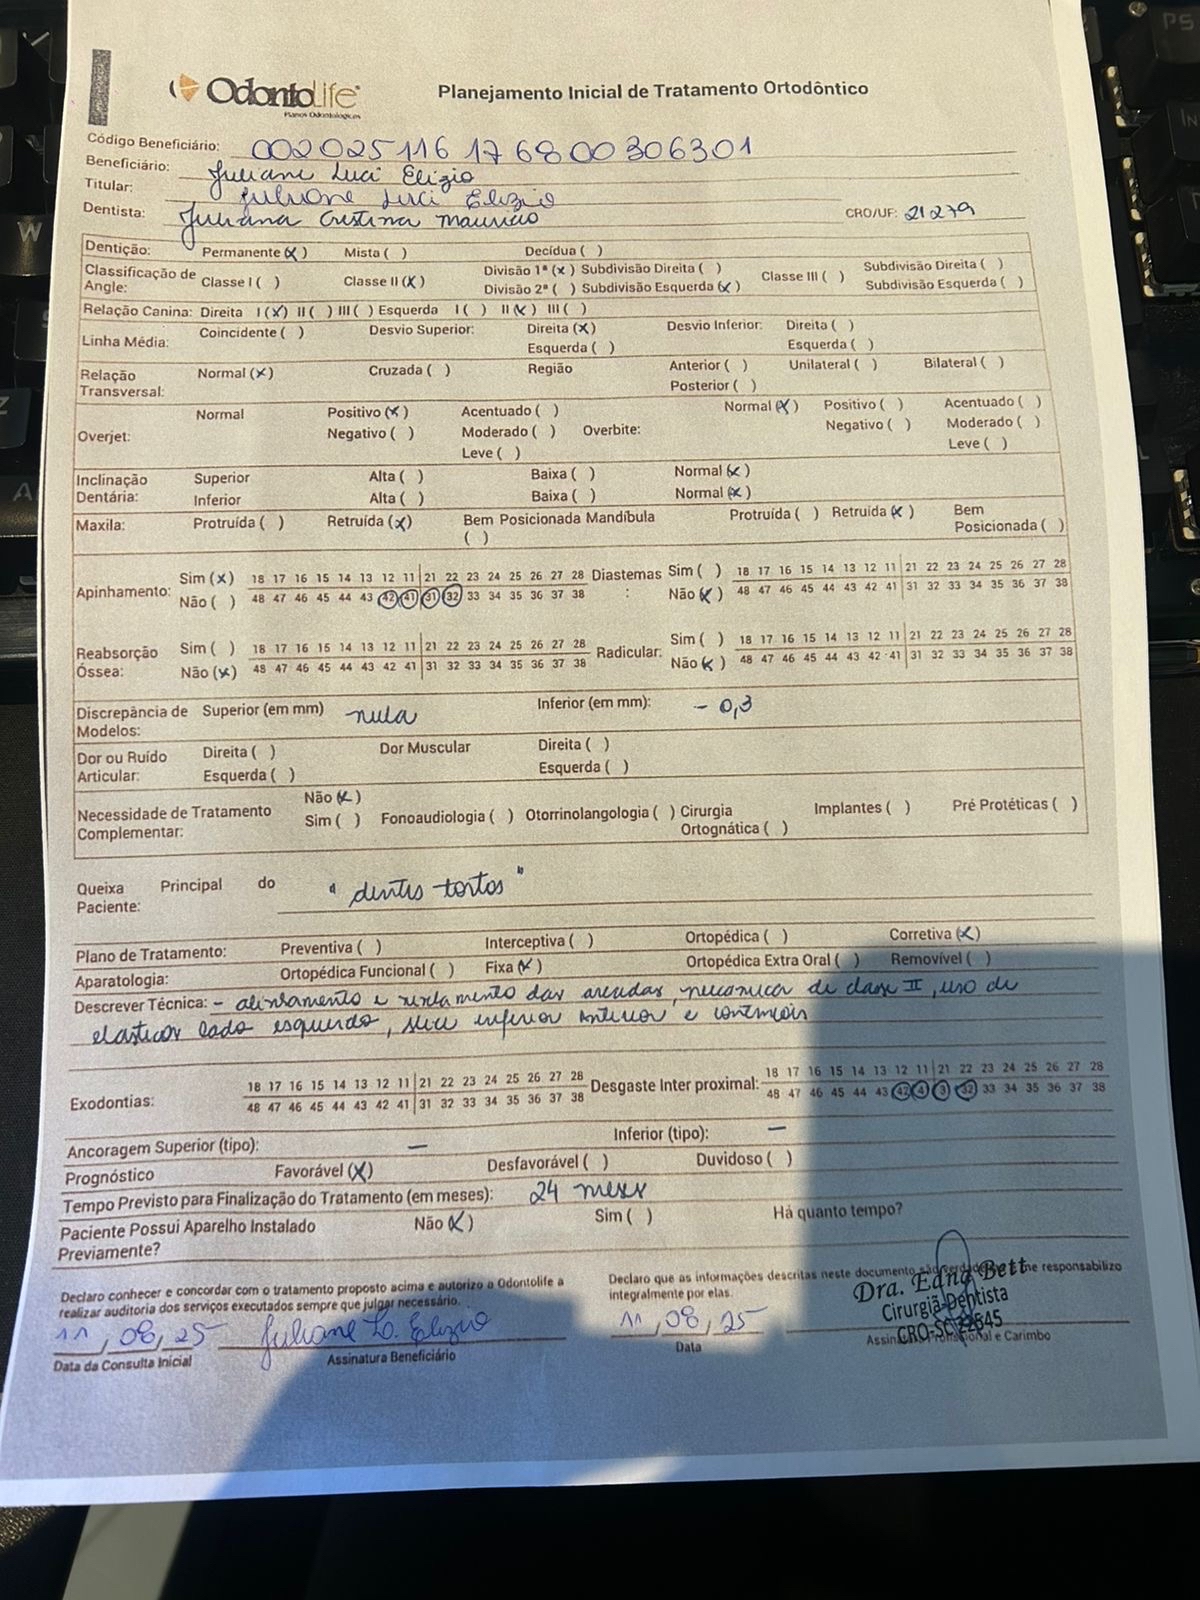 OdontoLife
Planos Odontológicos
Planejamento Inicial de Tratamento Ortodôntico
Código Beneficiário: 002025116176800306301
Beneficiário: Juliane Luci Elizio
Titular: Juliane Luci Elizio
Dentista: Juliana Cristina Mauricio CRO/UF: 21279
Dentição: Permanente (x) Mista ( ) Decídua ( )
Classificação de Angle: Classe I ( ) Classe II (x) Divisão 1ª (x) Subdivisão Direita ( ) Classe III ( ) Subdivisão Direita ( )
Divisão 2ª ( ) Subdivisão Esquerda (x) Subdivisão Esquerda ( )
Relação Canina: Direita I (x) II ( ) III ( ) Esquerda I ( ) II (x) III ( )
Linha Média: Coincidente ( ) Desvio Superior: Direita (x) Desvio Inferior: Direita ( )
Esquerda ( ) Esquerda ( )
Relação Transversal: Normal (x) Cruzada ( ) Região Anterior ( ) Unilateral ( ) Bilateral ( )
Posterior ( )
Overjet: Normal Positivo (x) Acentuado ( ) Overbite: Normal (x) Positivo ( ) Acentuado ( )
Negativo ( ) Moderado ( ) Negativo ( ) Moderado ( )
Leve ( ) Leve ( )
Inclinação Dentária: Superior Alta ( ) Baixa ( ) Normal (x)
Inferior Alta ( ) Baixa ( ) Normal (x)
Maxila: Protruída ( ) Retruída (x) Bem Posicionada ( ) Mandíbula Protruída ( ) Retruída (x) Bem Posicionada ( )
Apinhamento: Sim (x) 18 17 16 15 14 13 12 11 21 22 23 24 25 26 27 28 Diastemas : Sim ( ) 18 17 16 15 14 13 12 11 21 22 23 24 25 26 27 28
Não ( ) 48 47 46 45 44 43 42 41 31 32 33 34 35 36 37 38 Não (x) 48 47 46 45 44 43 42 41 31 32 33 34 35 36 37 38
Reabsorção Óssea: Sim ( ) 18 17 16 15 14 13 12 11 21 22 23 24 25 26 27 28 Radicular: Sim ( ) 18 17 16 15 14 13 12 11 21 22 23 24 25 26 27 28
Não (x) 48 47 46 45 44 43 42 41 31 32 33 34 35 36 37 38 Não (x) 48 47 46 45 44 43 42 41 31 32 33 34 35 36 37 38
Discrepância de Modelos: Superior (em mm) nula Inferior (em mm): - 0,3
Dor ou Ruído Articular: Direita ( ) Dor Muscular Direita ( )
Esquerda ( ) Esquerda ( )
Necessidade de Tratamento Complementar: Não (x)
Sim ( ) Fonoaudiologia ( ) Otorrinolangologia ( ) Cirurgia Ortognática ( ) Implantes ( ) Pré Protéticas ( )
Queixa Principal do Paciente: "dentes tortos"
Plano de Tratamento: Preventiva ( ) Interceptiva ( ) Ortopédica ( ) Corretiva (x)
Aparatologia: Ortopédica Funcional ( ) Fixa (x) Ortopédica Extra Oral ( ) Removível ( )
Descrever Técnica: - alinhamento e nivelamento das arcadas, mecanica de classe II, uso de
elasticos lado esquerdo, slice inferior anterior e contenção
Exodontias: 18 17 16 15 14 13 12 11 21 22 23 24 25 26 27 28 Desgaste Inter proximal: 18 17 16 15 14 13 12 11 21 22 23 24 25 26 27 28
48 47 46 45 44 43 42 41 31 32 33 34 35 36 37 38 48 47 46 45 44 43 42 41 31 32 33 34 35 36 37 38
Ancoragem Superior (tipo): - Inferior (tipo): -
Prognóstico Favorável (x) Desfavorável ( ) Duvidoso ( )
Tempo Previsto para Finalização do Tratamento (em meses): 24 meses
Paciente Possui Aparelho Instalado Previamente? Não (x) Sim ( ) Há quanto tempo?
Declaro conhecer e concordar com o tratamento proposto acima e autorizo a Odontolife a
realizar auditoria dos serviços executados sempre que julgar necessário.
Declaro que as informações descritas neste documento são verdadeiras e me responsabilizo
integralmente por elas.
Dra. Edna Bett
Cirurgiã-Dentista
CRO-SC 22645
11, 08, 25 Juliane L. Elizio 11, 08, 25
Data da Consulta Inicial Assinatura Beneficiário Data Assinatura Profissional e Carimbo